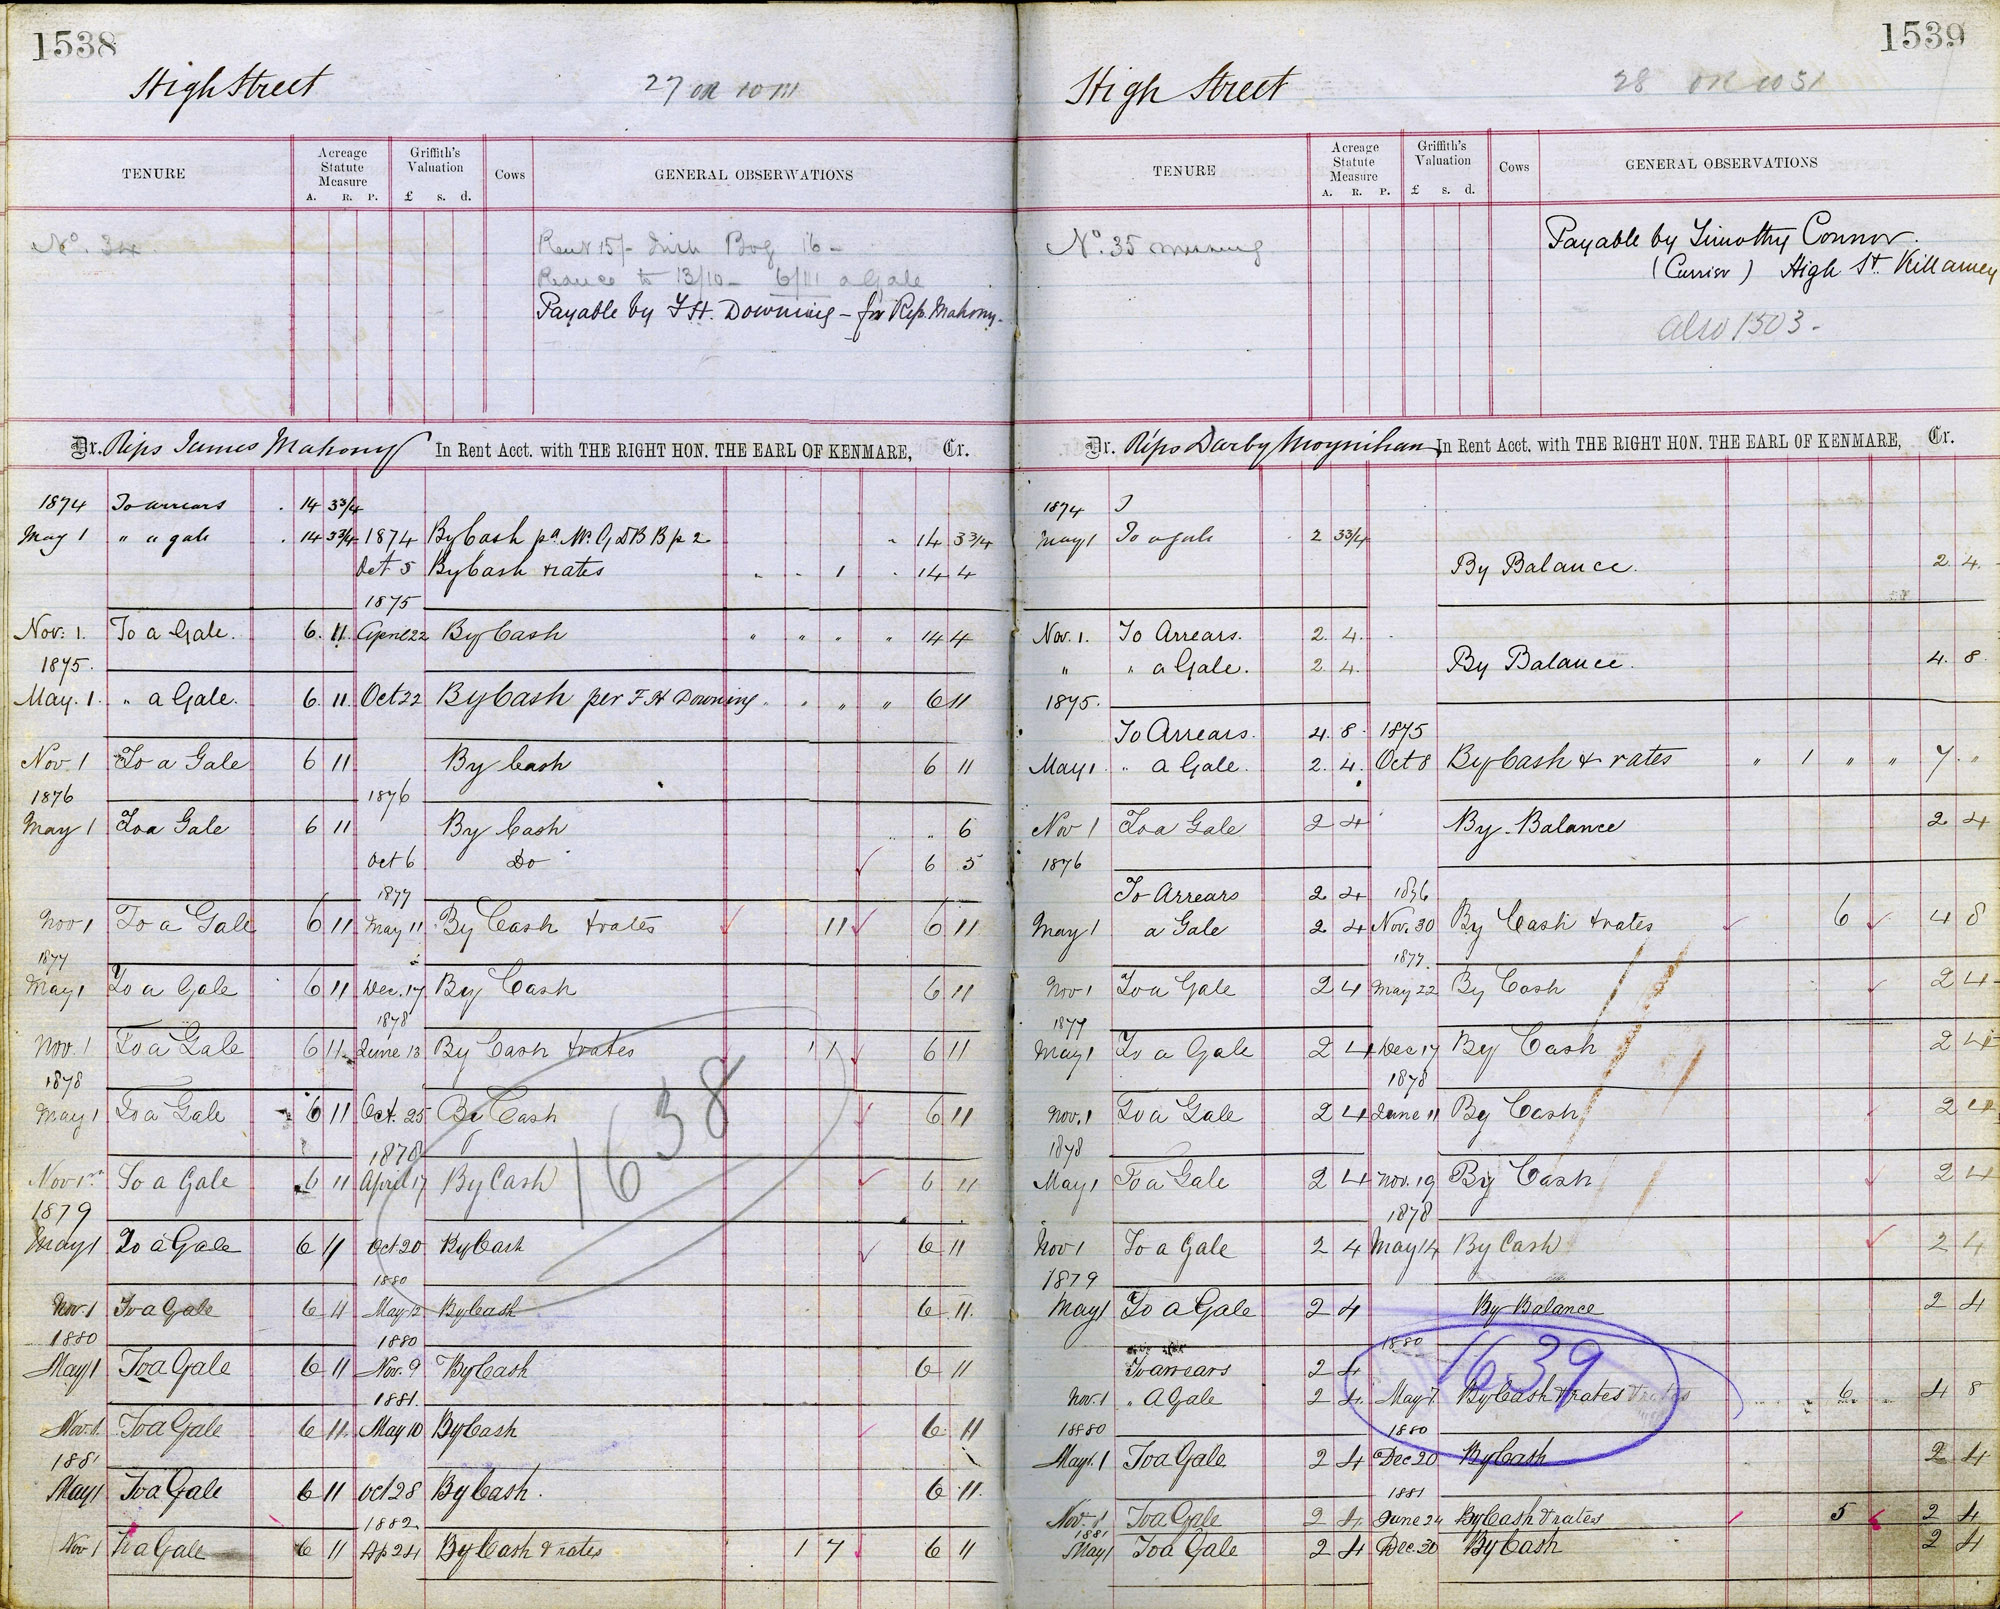 1538
High Street
27 OR 10
TENURE
Acreage Statute Measure
A. R. P.
Griffith's Valuation
£ s. d.
Cows
GENERAL OBSERVATIONS
No. 34
Rent 15/- Bog 16 -
to 13/10 - 6/11 a Gale
Payable by F H. Downing - for Rep. Mahony.
Dr. Reps James Mahony In Rent Acct. with THE RIGHT HON. THE EARL OF KENMARE, Cr.
1874 To arrears 14 3 3/4
May 1 " " gale 14 3 3/4 1874 By Cash pd. Mr. G D B B p 2 14 3 3/4
Oct 5 By Cash & rates 1 14 4
1875
Nov. 1. To a Gale. 6. 11. April 22 By Cash " " " " 14 4
1875.
May. 1. " a Gale. 6. 11. Oct 22 By Cash per F H Downing " " " " 6 11
Nov. 1 To a Gale 6 11 By Cash 6 11
1876 1876
May 1 To a Gale 6 11 By Cash " 6
Oct 6 Do 6 5
1877
Nov 1 To a Gale 6 11 May 11 By Cash & rates 11 6 11
1877
May 1 To a Gale 6 11 Dec. 17 By Cash 6 11
1878
Nov. 1 To a Gale 6 11 June 13 By Cash & rates 11 6 11
1878
May 1 To a Gale 6 11 Oct. 25 By Cash 6 11
1638
1878
Nov 1st To a Gale 6 11 April 17 By Cash 6 11
1879
May 1 To a Gale 6 11 Oct 20 By Cash 6 11
1880
Nov 1 To a Gale 6 11 May 12 By Cash 6 11
1880 1880
May 1 To a Gale 6 11 Nov. 9 By Cash 6 11
1881.
Nov. 1. To a Gale 6 11 May 10 By Cash 6 11
1881
May 1 To a Gale 6 11 Oct 28 By Cash. 6 11
1882
Nov 1 To a Gale 6 11 Ap 24 By Cash & rates 1 7 6 11
1539
High Street
28 OR 10 31
TENURE
Acreage Statute Measure
A. R. P.
Griffith's Valuation
£ s. d.
Cows
GENERAL OBSERVATIONS
No. 35
Payable by Timothy Connor.
(Currier) High St. Killarney
also 1503 -
Dr. Reps Darby Moynihan In Rent Acct. with THE RIGHT HON. THE EARL OF KENMARE, Cr.
1874
May 1 To a gale 2 3 3/4
By Balance. 2 4.
Nov. 1. To Arrears. 2. 4.
" " a Gale. 2 4. By Balance. 4. 8.
1875.
To Arrears. 4. 8. 1875
May 1. " a Gale. 2. 4. Oct 8 By Cash & rates " 1 " " 7. "
Nov 1 To a Gale 2 4 By Balance 2 4
1876
To Arrears 2 4 1876
May 1 a Gale 2 4 Nov. 30 By Cash & rates 6 4 8
1877.
Nov 1 To a Gale 2 4 May 22 By Cash 2 4
1877
May 1 To a Gale 2 4 Dec 17 By Cash 2 4
1878
Nov. 1 To a Gale 2 4 June 11 By Cash 2 4
1878
May 1 To a Gale 2 4 Nov. 19 By Cash 2 4
1878
Nov 1 To a Gale 2 4 May 14 By Cash 2 4
1879
May 1 To a Gale 2 4 By Balance 2 4
1880
1639
To arrears 2 4
Nov. 1 " A Gale 2 4. May 7. By Cash & rates 6 4 8
1880 1880
May. 1 To a Gale 2 4 Dec 20 By Cash 2 4
1881
Nov. 1 To a Gale 2 4. June 24 By Cash & rates 5 2 4
1881
May 1 To a Gale 2 4 Dec. 30 By Cash 2 4